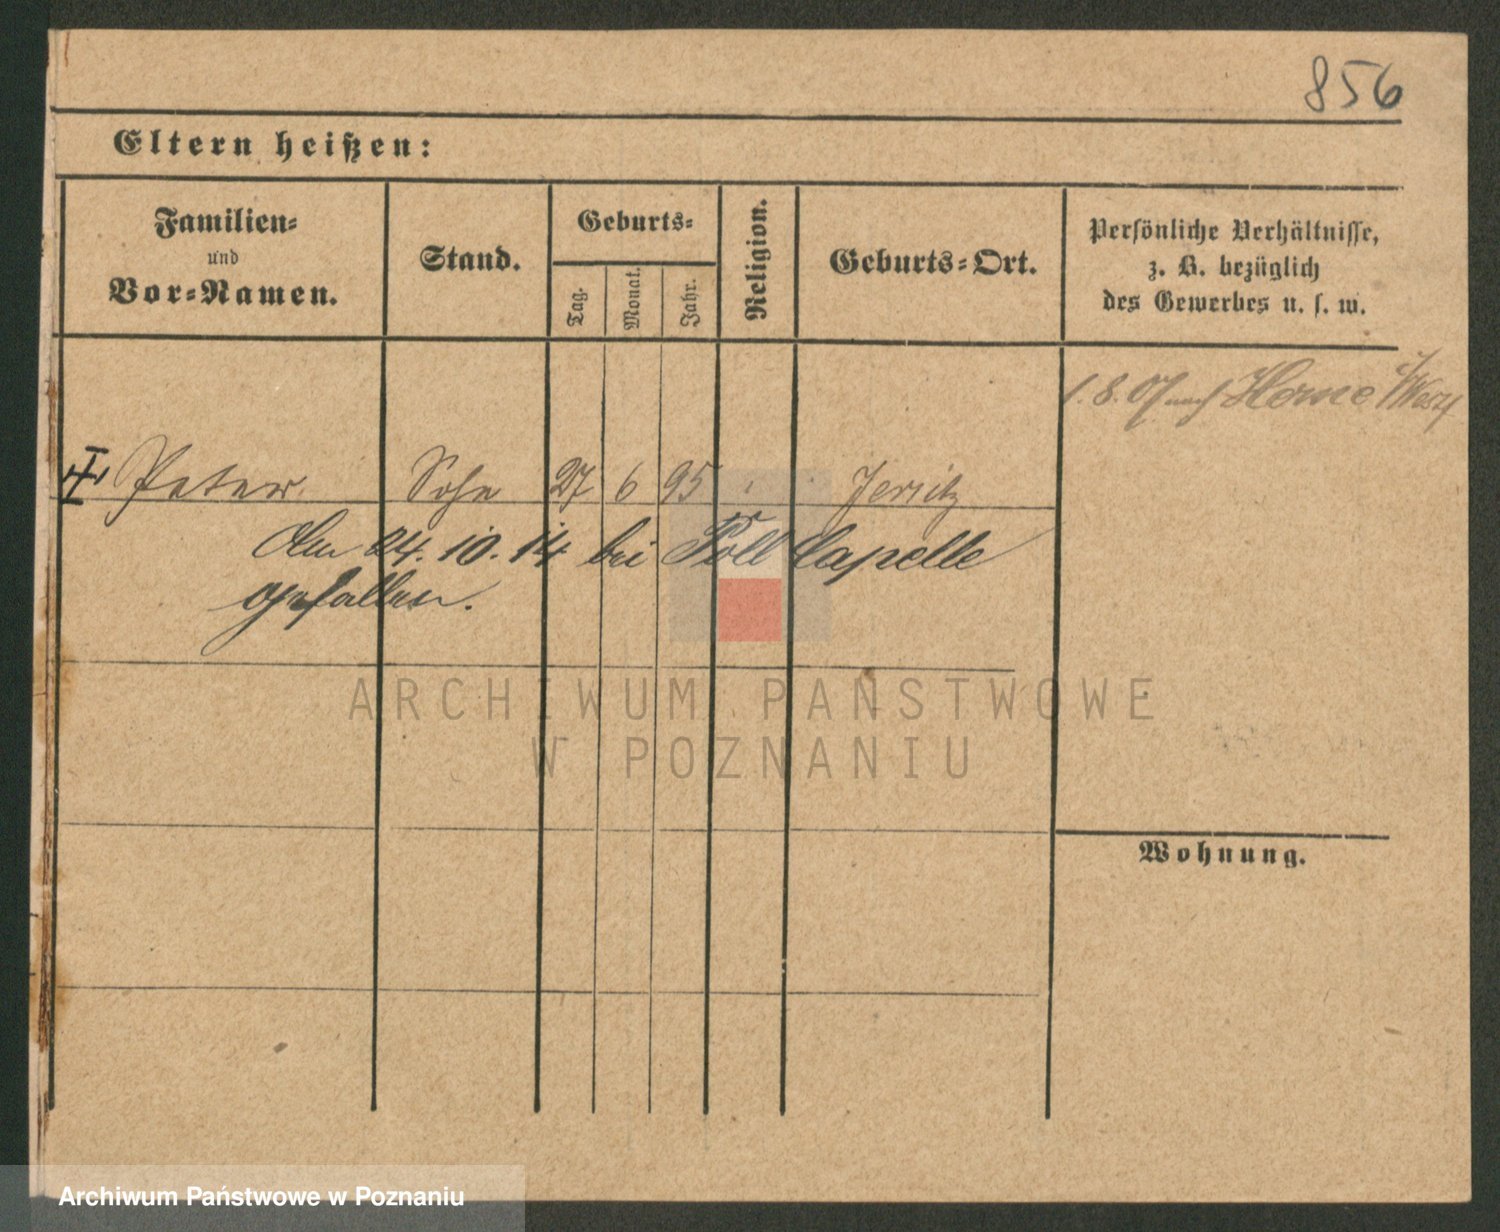 856
Eltern heißen:
Familien-
und
Vor-Namen.
Stand.
Geburts-
Tag.
Monat.
Jahr.
Religion.
Geburts-Ort.
Persönliche Verhältnisse,
z. B. bezüglich
des Gewerbes u. s. w.
1. 8. 07 nach Herne i/Westf
Peter Sohn 27 6 95 Jersitz
Am 24. 10. 14 bei Poll Capelle
gefallen.
ARCHIWUM PAŃSTWOWE
W POZNANIU
Wohnung.
Archiwum Państwowe w Poznaniu